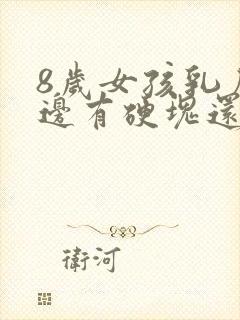 8歲女孩乳
邊有硬塊還
衛河